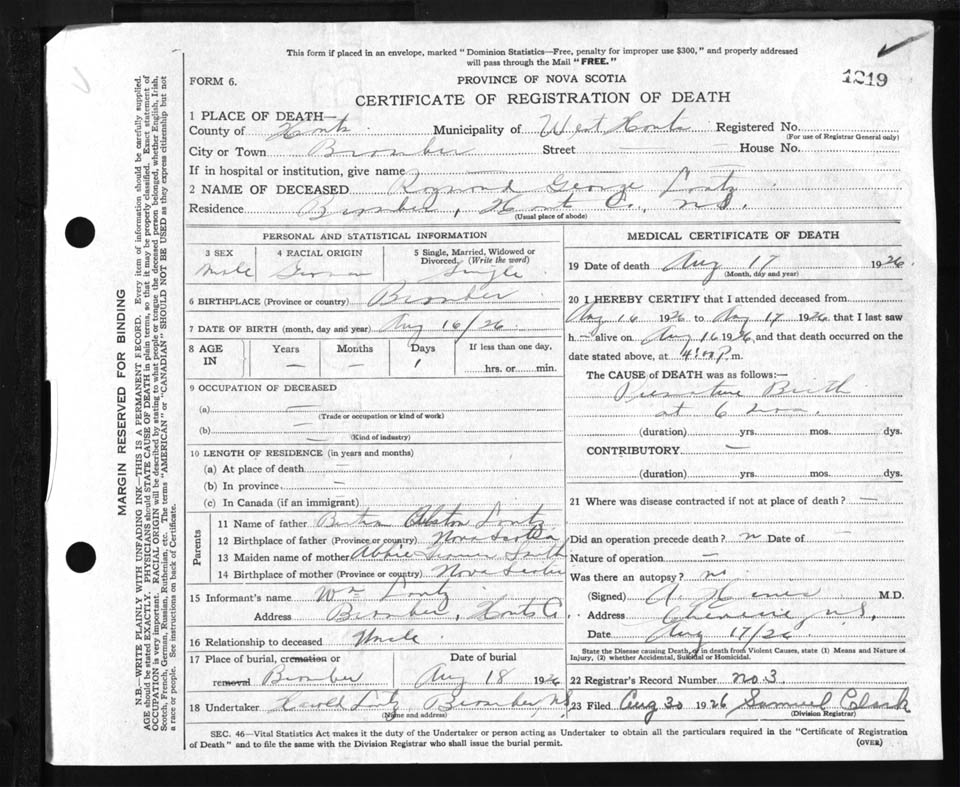 This form if placed in an envelope, marked "Dominion Statistics—Free, penalty for improper use $300," and properly addressed
will pass through the Mail "FREE."
1219
FORM 6.
PROVINCE OF NOVA SCOTIA
CERTIFICATE OF REGISTRATION OF DEATH
1 PLACE OF DEATH—
County of Hants Municipality of West Hants Registered No.
(For use of Registrar General only)
City or Town Bromber Street — House No.
If in hospital or institution, give name —
2 NAME OF DECEASED Raymond George Lontz
Residence Bromber, Hants Co., N.S.
(Usual place of abode)
PERSONAL AND STATISTICAL INFORMATION
3 SEX 4 RACIAL ORIGIN 5 Single, Married, Widowed or
Divorced, (Write the word)
Male German Single
6 BIRTHPLACE (Province or country) Bromber
7 DATE OF BIRTH (month, day and year) Aug 16/26
8 AGE IN Years Months Days If less than one day,
— — 1 hrs. or min.
9 OCCUPATION OF DECEASED
(a) —
(Trade or occupation or kind of work)
(b) —
(Kind of industry)
10 LENGTH OF RESIDENCE (in years and months)
(a) At place of death —
(b) In province —
(c) In Canada (if an immigrant)
Parents
11 Name of father Alston Lontz
12 Birthplace of father (Province or country) Nova Scotia
13 Maiden name of mother Abbie Smith
14 Birthplace of mother (Province or country) Nova Scotia
15 Informant's name Wm Lontz
Address Bromber, Hants Co
16 Relationship to deceased Uncle
17 Place of burial, cremation or removal Date of burial
Bromber Aug 18 1926
18 Undertaker Harold Lontz Bromber N.S.
(Name and address)
MEDICAL CERTIFICATE OF DEATH
19 Date of death Aug 17 1926
(Month, day and year)
20 I HEREBY CERTIFY that I attended deceased from
Aug 16 1926 to Aug 17 1926, that I last saw
h — alive on Aug 16 1926, and that death occurred on the
date stated above, at 4:00 P.m.
The CAUSE of DEATH was as follows:—
Premature Birth
at 6 mos.
(duration) yrs. mos. dys.
CONTRIBUTORY —
(duration) yrs. mos. dys.
21 Where was disease contracted if not at place of death? —
Did an operation precede death? n Date of —
Nature of operation —
Was there an autopsy? no
(Signed) A. M.D.
Address N.S.
Date Aug 17/26
State the Disease causing Death, or in death from Violent Causes, state (1) Means and Nature of
Injury, (2) whether Accidental, Suicidal or Homicidal.
22 Registrar's Record Number No. 3
23 Filed Aug 30 1926 Samuel Clark
(Division Registrar)
SEC. 46—Vital Statistics Act makes it the duty of the Undertaker or person acting as Undertaker to obtain all the particulars required in the "Certificate of Registration
of Death" and to file the same with the Division Registrar who shall issue the burial permit.
(OVER)
MARGIN RESERVED FOR BINDING
N.B.—WRITE PLAINLY WITH UNFADING INK—THIS IS A PERMANENT RECORD. Every item of information should be carefully supplied.
AGE should be stated EXACTLY. PHYSICIANS should STATE CAUSE OF DEATH in plain terms, so that it may be properly classified. Exact statement of
OCCUPATION is very important. RACIAL ORIGIN will be described by stating to what people or tongue the deceased person belonged, whether English, Irish,
Scotch, French, German, Russian, Ruthenian, etc. The terms "AMERICAN" or "CANADIAN" SHOULD NOT BE USED as they express citizenship but not
a race or people. See instructions on back of Certificate.